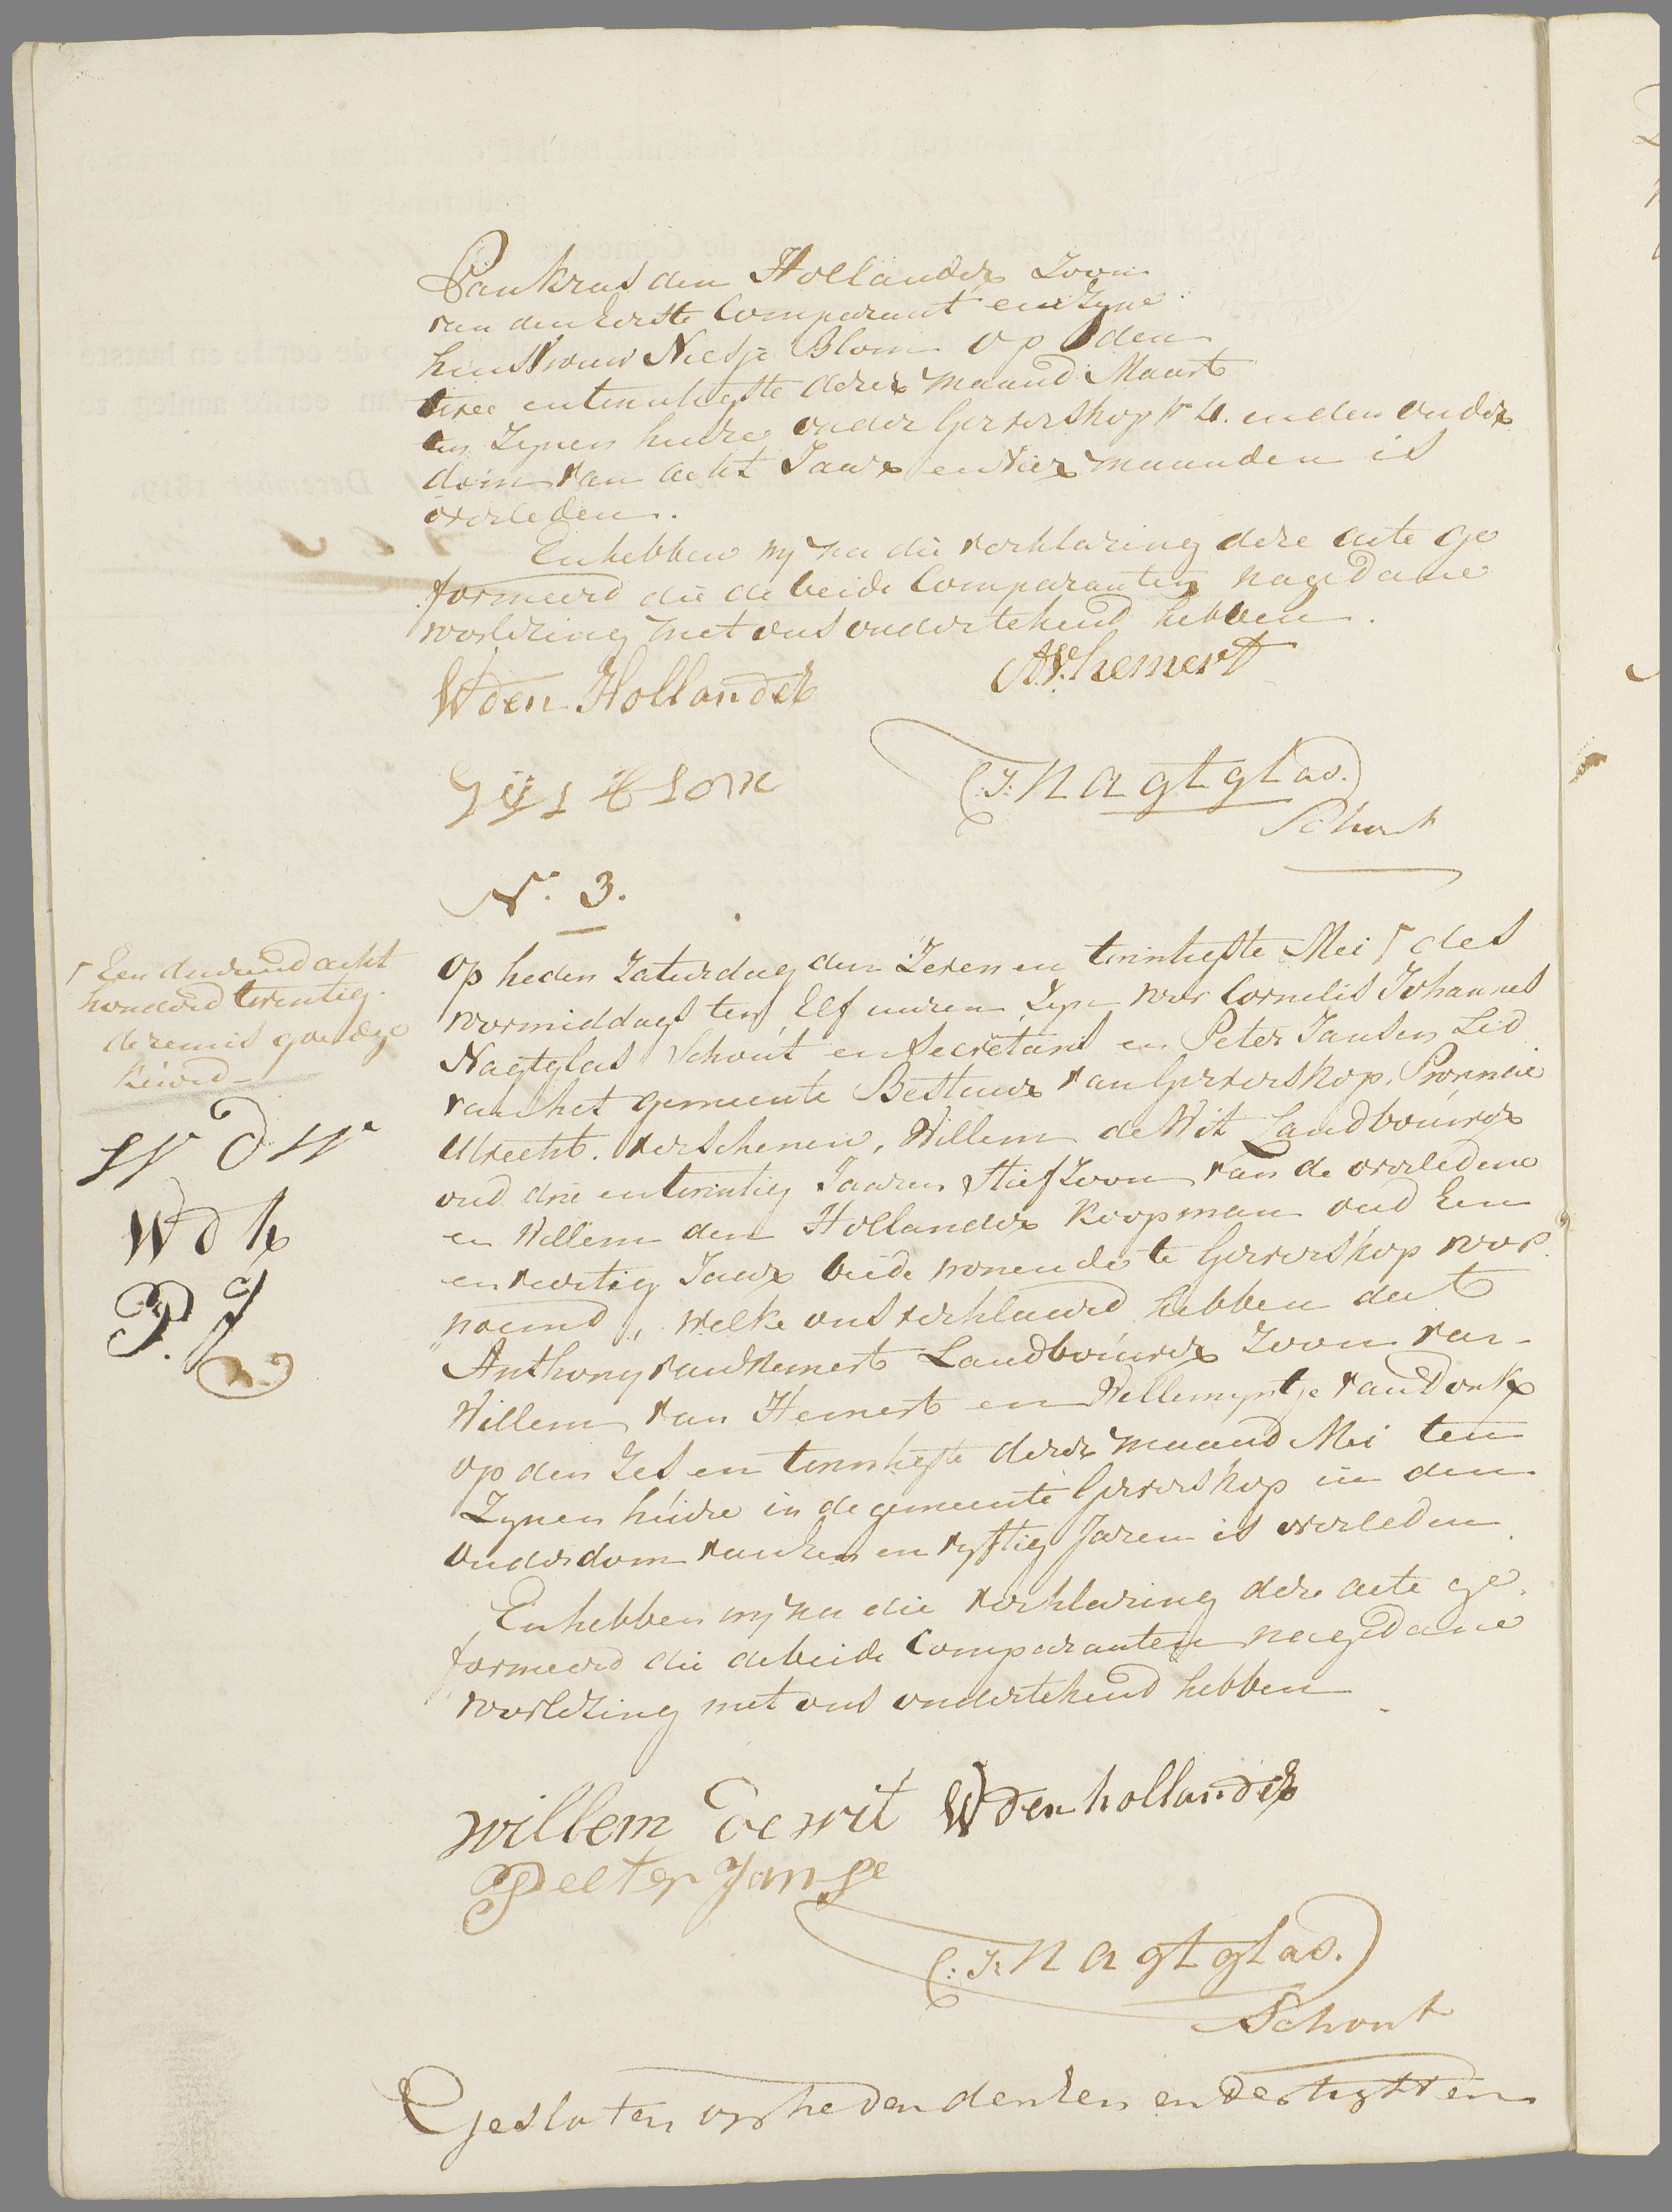 Pankras den Hollander Zoon
van den Eerste Comparant en Zyne
huisvrouw Neesje Blom op den
twee en twintigste dezer maand Maart
ten Zynen huize onder Gerverskop N 4. in den ouder
dom van acht Jaar en Vier maanden is
overleden.
En hebben wy na die verklaring deze acte ge
formeerd die de beide Comparanten na gedane
voorlezing met ons ondertekend hebben.
W den Hollander
AV. hemert
Gijs blom
C: J: Nagtglas.
Schout
N. 3.
Op heden Zaturdag den Zeven en twintigste Mei des
voormiddags ten Elf uuren Zyn voor Cornelis Johannes
Nagtglas Schout en Secretaris en Peter Jansen Lid
van het gemeente Bestuur van Gerverskop, Provincie
Utrecht. verschenen, Willem de Wit Landbouwer
oud drie en twintig Jaaren Stiefzoon van de overledene
en Willem den Hollander Koopman oud Een
en veertig Jaar beide wonende te Gerverskop voor
noemd, welke ons verklaard hebben dat
Anthony van Hemert Landbouwer Zoon van
Willem van Hemert en Willemyntje van Donk
op den Zes en twintigste dezer maand Mei ten
Zynen huize in de gemeente Gerverskop in den
ouderdom van Zes en vyftig Jaren is overleden
En hebben wy na die verklaring deze acte ge
formeerd die de beide Comparanten na gedane
voorlezing met ons ondertekend hebben
Een duizend acht
honderd twentig
deze mis goedge
keurd
W d W
W d h
P. J
willem de wit W den hollander
Peeter Janse
C: J: Nagtglas.
Schout
Gesloten op heden den een en dertigsten